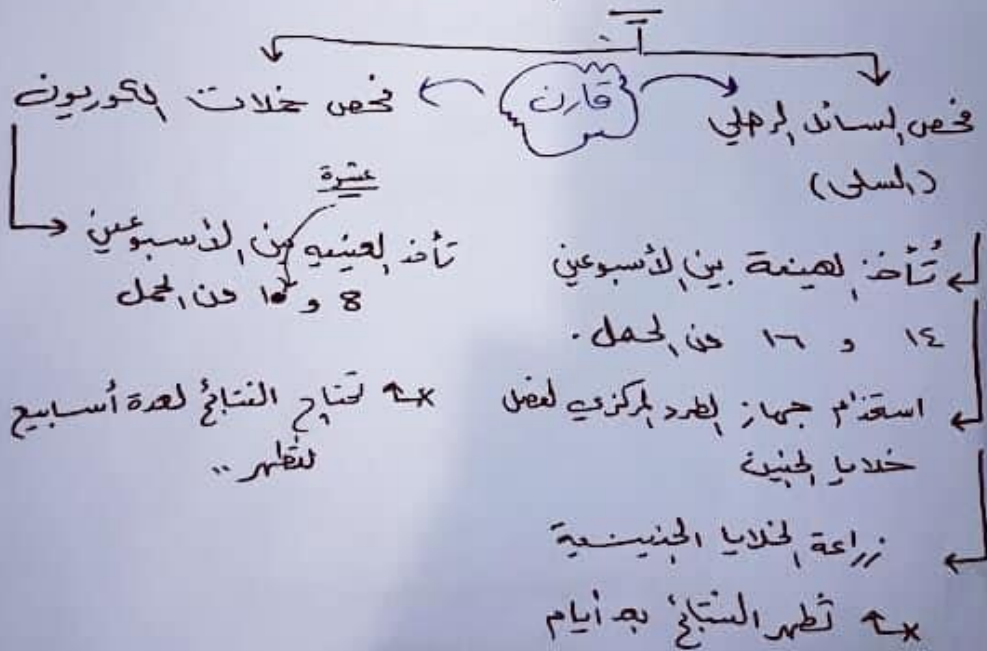 قارن
فحص السائل الرهلي
(السلى)
تُأخذ العينة بين الأسبوعين
١٤ و ١٦ من الحمل.
استخدام جهاز الطرد المركزي لفصل
خلايا الجنين
زراعة الخلايا الجنينية
تظهر النتائج بعد أيام
فحص خملات الكوريون
عشرة
تأخذ العينيه بين الأسبوعين
8 و 10 من الحمل
تحتاج النتائج لعدة أسابيع
لتظهر ..